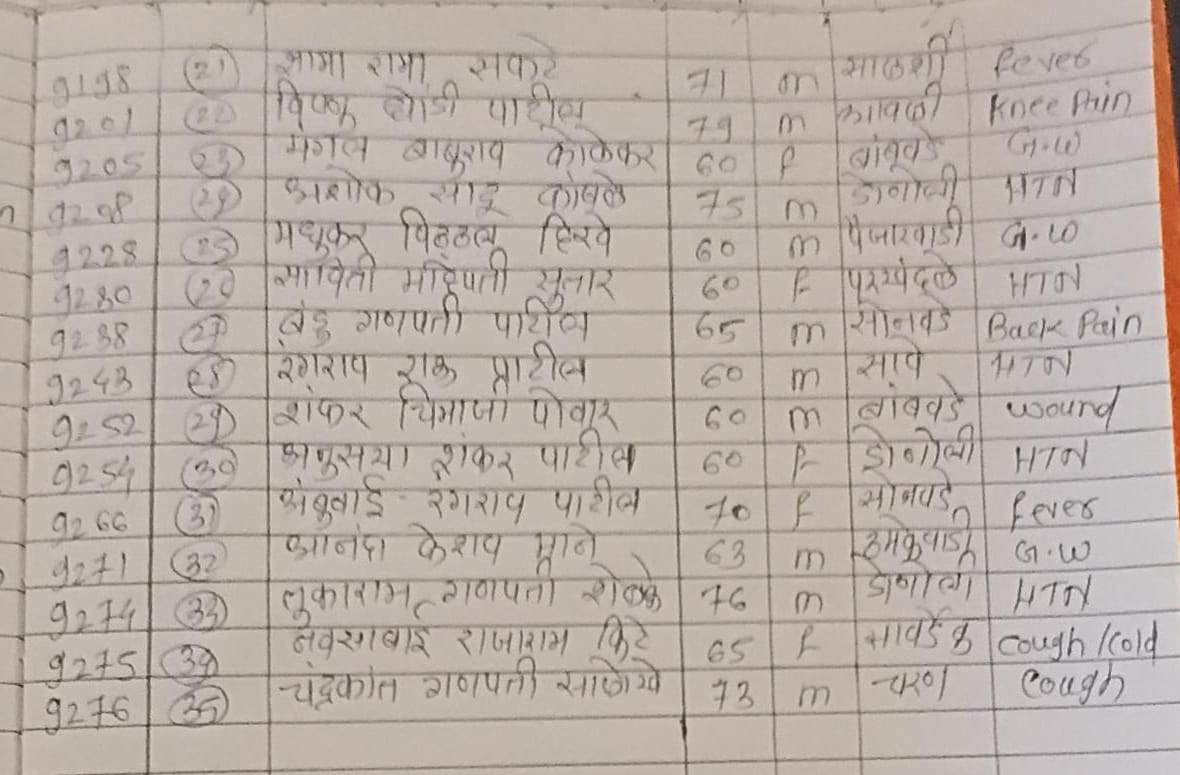 9198 (21) भामा रामा सकटे 71 m माळशी fever
9201 (22) विष्णू धोंडी पाटील 79 m कावळी Knee Pain
9205 (23) मंगल बाबुराव कोकेकर 60 F बांबवडे G.W
9208 (24) अशोक सादू कांबळे 75 m डोणोली HTN
9228 (25) मधुकर विठ्ठल हिरवे 60 m पैजारवाडी G.W
9230 सावित्री महिपती सुतार 60 F HTN
9238 (27) बंडु गणपती पाटील 65 m सोनवडे Back Pain
9243 (28) रंगराव पाटील 60 m सावे HTN
9252 (29) शंकर चिमाजी पोवार 60 m बांबवडे wound
9254 (30) अनुसया शंकर पाटील 60 F डोणोली HTN
9266 (31) अंबुबाई रंगराव पाटील 70 F सोनवडे fever
9271 (32) आनंदा केशव माने 63 m G.W
9274 (33) तुकाराम गणपती शेळके 76 m डोणोली HTN
9275 (34) नक्साबाई राजाराम किटे 65 F Cough/Cold
9276 (35) चंद्रकांत गणपती साळोखे 73 m चरण Cough